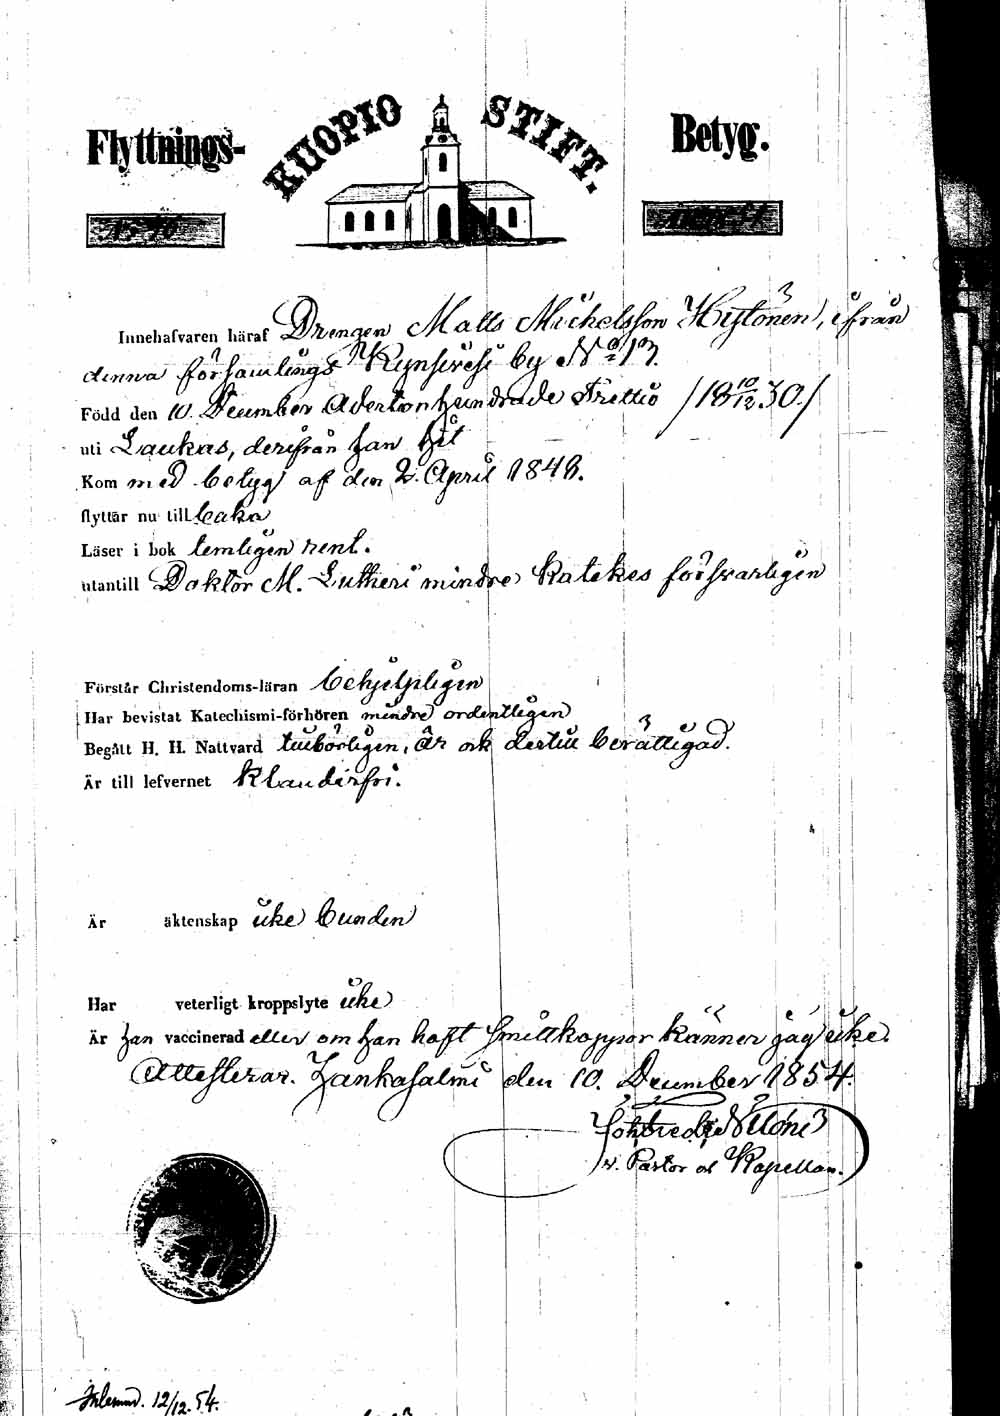 Flyttnings- KUOPIO STIFT. Betyg.
Innehafvaren häraf Drengen Matts Michelsson Hytönen, ifrån
denna församlings Kynsivesi by No 13.
Född den 10. December Adertonhundrade Trettio /18 10/12 30./
uti Laukas, derifrån han hit
Kom med betyg af den 2. April 1848.
flyttar nu till baka
Läser i bok temligen rent.
utantill Doktor M. Lutheri mindre Katekes försvarligen
Förstår Christendoms-läran behjelpligen
Har bevistat Katechismi-förhören mindre ordentligen
Begått H. H. Nattvard tillbörligen, är ock dertill berättigad.
Är till lefvernet klanderfri.
Är äktenskap icke bunden
Har veterligt kroppslyte icke
Är han vaccinerad eller om han haft smittkoppor känner jag icke.
Attesterar. Hankasalmi den 10. December 1854.
v. Pastor och Kapellan.
12/12. 54.